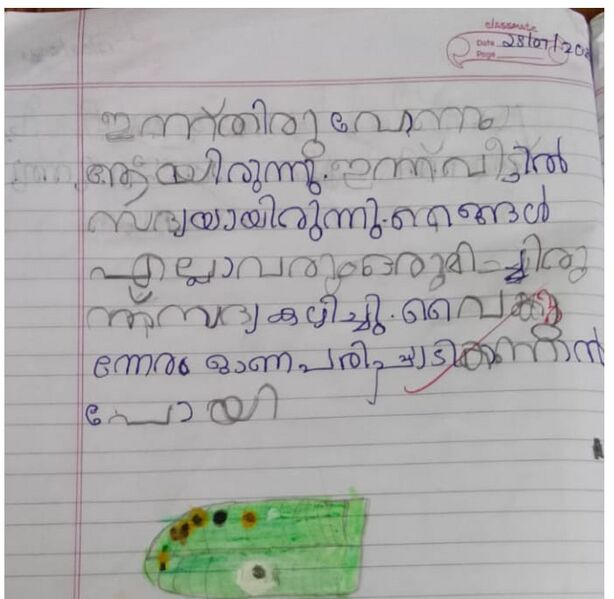 classmate
Date 28/07/202
Page
ഇന്ന് തിരുവോണം
ആയിരുന്നു. ഇന്ന് വീട്ടിൽ
സദ്യയായിരുന്നു. ഞങ്ങൾ
എല്ലാവരും ഒരുമിച്ചിരു
ന്ന് സദ്യ കഴിച്ചു. വൈകു
ന്നേരം ഓണപരിപ്പാടി കാണാൻ
പോയി